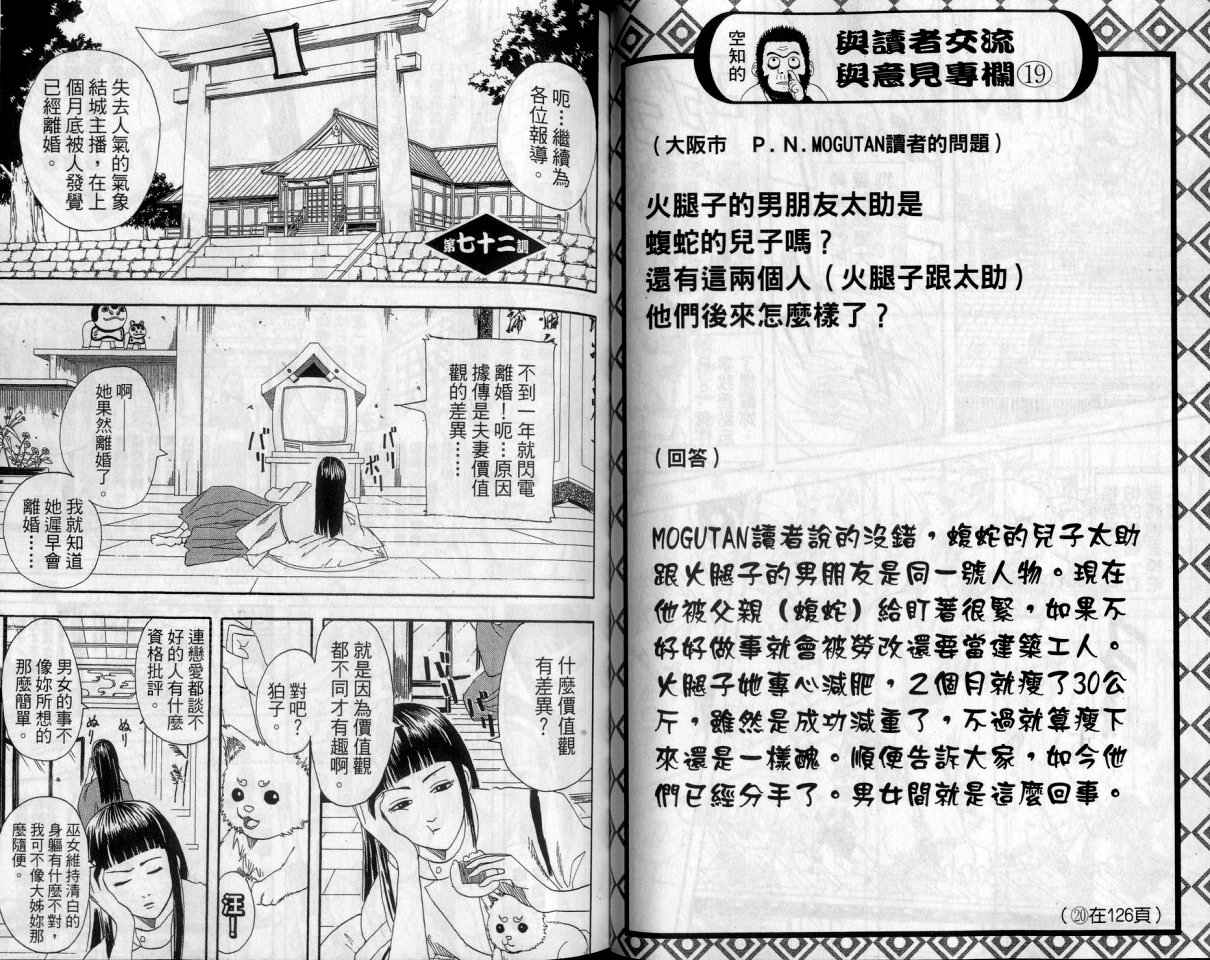 空知的
與讀者交流
與意見專欄⑲
(大阪市　P.N.MOGUTAN讀者的問題)
火腿子的男朋友太助是
蝮蛇的兒子嗎?
還有這兩個人(火腿子跟太助)
他們後來怎麼樣了?
(回答)
MOGUTAN讀者說的沒錯,蝮蛇的兒子太助
跟火腿子的男朋友是同一號人物。現在
他被父親(蝮蛇)給盯著很緊,如果不
好好做事就會被勞改還要當建築工人。
火腿子她專心減肥,2個月就瘦了30公
斤,雖然是成功減重了,不過就算瘦下
來還是一樣醜。順便告訴大家,如今他
們已經分手了。男女間就是這麼回事。
(⑳在126頁)
呃…繼續為
各位報導。
失去人氣的氣象
結城主播,在上
個月底被人發覺
已經離婚。
第七十二訓
不到一年就閃電
離婚!呃…原因
據傳是夫妻價值
觀的差異……
啊
她果然離婚了。
我就知道
她遲早會
離婚……
バリ
ボリ
バリ
什麼價值觀
有差異?
就是因為價值觀
都不同才有趣啊。
對吧?
狛子。
汪!
連戀愛都談不
好的人有什麼
資格批評。
男女的事不
像妳所想的
那麼簡單。
ぬり
ぬり
巫女維持清白的
身軀有什麼不對,
我可不像大姊妳那
麼隨便。